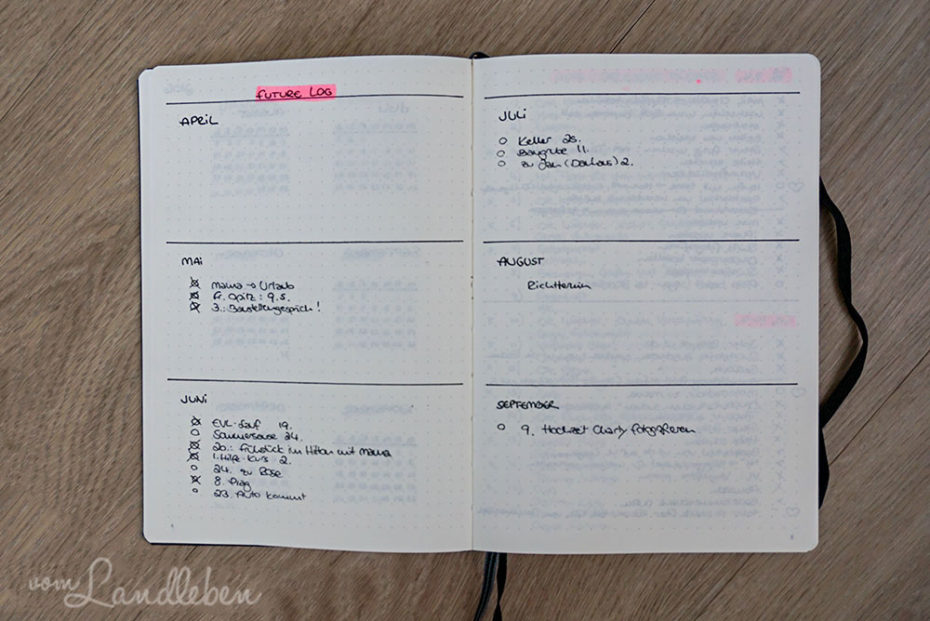 FUTURE LOG
APRIL
MAI
Mama → Urlaub
Fr. Opitz: 9.5.
3.: Baustellengespräch!
JUNI
EVL-Lauf 19.
Sommersause 24.
26.: Frühstück im Hilton mit Mama
1. Hilfe-Kurs 2.
24. zu Böse
8. Prag
23. Auto kommt
JULI
Keller 25.
Baugrube 11.
zu Jan (Dachaus) 2.
AUGUST
Richttermin
SEPTEMBER
9. Hochzeit Charly fotografieren
vom Landleben